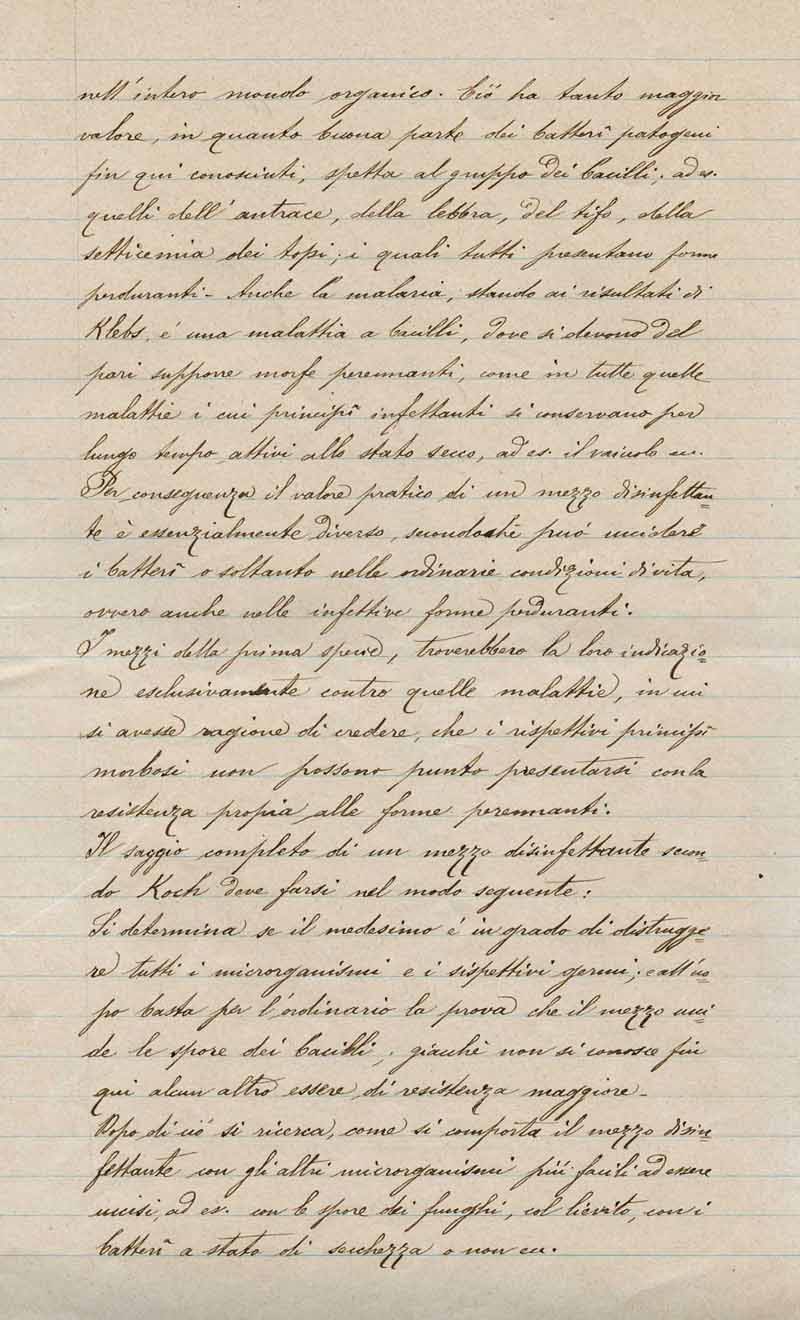 nell'intero mondo organico. Ció ha tanto maggior
valore, in quanto buona parte dei batterî patogeni
fin qui conosciuti, spetta al gruppo dei bacilli; ad es.
quelli dell'antrace, della lebbra, del tifo, della
setticemia dei topi; i quali tutti presentano forme
perduranti - Anche la malaria, stando ai risultati di
Klebs, é una malattia a bacilli, dove si devono del
pari supporre morfe perennanti, come in tutte quelle
malattie i cui principî infettanti si conservano per
lungo tempo attivi allo stato secco, ad es. il vaiuolo ec.
Per conseguenza il valore pratico di un mezzo disinfettan=
te è essenzialmente diverso, secondochè puó uccidere
i batterî o soltanto nelle ordinarie condizioni di vita,
ovvero anche nelle infettive forme perduranti.
I mezzi della prima specie, troverebbero la loro indicazio=
ne esclusivamente contro quelle malattie, in cui
si avesse ragione di credere, che i rispettivi principî
morbosi non possono punto presentarsi con la
resistenza propia alle forme perennanti.
Il saggio completo di un mezzo disinfettante secon=
do Koch deve farsi nel modo seguente:
Si determina se il medesimo é in grado di distrugge=
re tutti i microrganismi e i sispettivi germi; e all'uo=
po basta per l'ordinario la prova che il mezzo ucci=
de le spore dei bacilli; giacchè non si conosce fin
qui alcun altro essere di resistenza maggiore -
Dopo di ció si ricerca, come si comporta il mezzo disin=
fettante con gli altri microrganismi piú facili ad essere
uccisi, ad es. con le spore dei funghi, col lievito, con i
batterî a stato di secchezza o non ec.